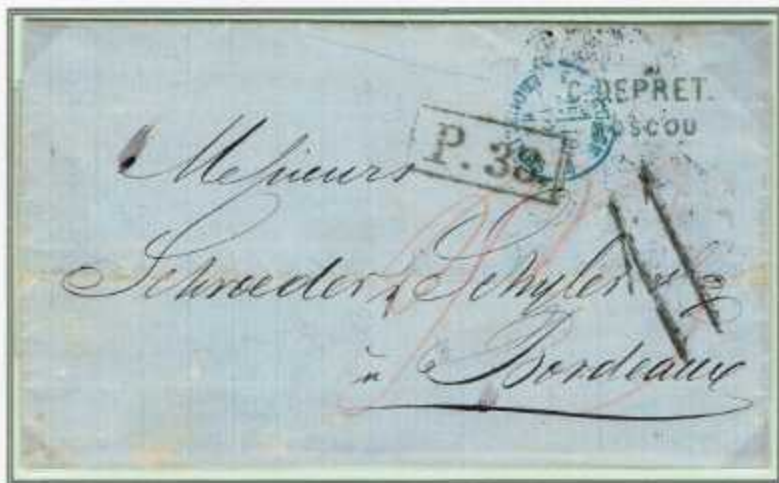 C. DEPRET.
MOSCOU
P. 38.
Messieurs
Schroeder, Schyler & Co
à Bordeaux